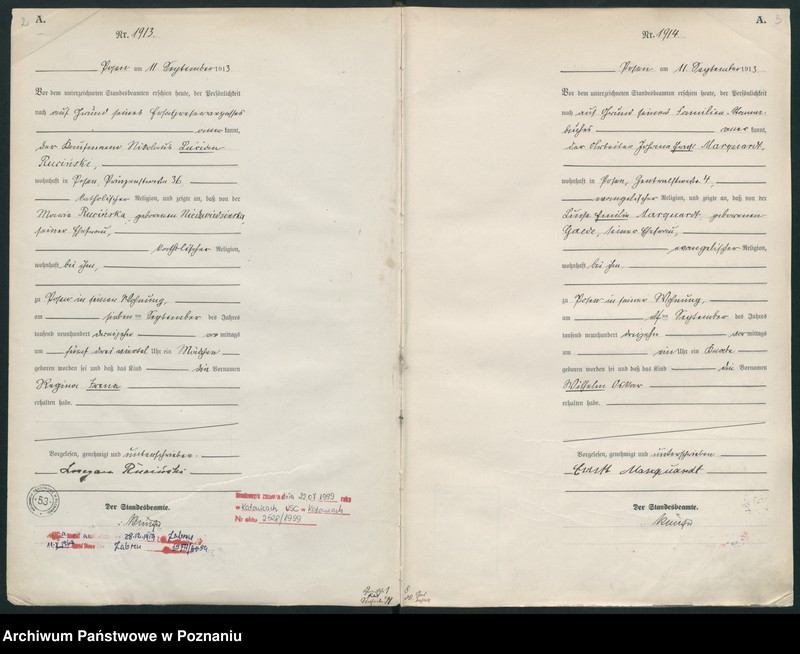 2
A.
Nr. 1913.
Posen am 11 September 1913
Vor dem unterzeichneten Standesbeamten erschien heute, der Persönlichkeit
nach auf Grund seines
kannt,
der Kaufmann Nikolaus Lucian
Ruciński,
wohnhaft in Posen, Prinzenstraße 36,
katholischer Religion, und zeigte an, daß von der
Maria Rucińska, geborenen
seiner Ehefrau,
katholischer Religion,
wohnhaft bei ihm,
zu Posen in seiner Wohnung,
am sieben ten September des Jahres
tausend neunhundert dreizehn mittags
um fünf drei viertel Uhr ein Mädchen
geboren worden sei und daß das Kind die Vornamen
Regina Irena
erhalten habe.
Vorgelesen, genehmigt und unterschrieben
Ruciński
Der Standesbeamte.
53
dnia 22.07.1999 roku
w Katowicach USC w Katowicach
Nr aktu 2528/1999
28.12.1979 Zabrze
Zabrzu
A. 3
Nr. 1914
Posen am 11 September 1913
Vor dem unterzeichneten Standesbeamten erschien heute, der Persönlichkeit
nach auf Grund seines Familien-Stamm-
buches kannt,
der Arbeiter Johann Marquardt,
wohnhaft in Posen, Zentralstraße 4,
evangelischer Religion, und zeigte an, daß von der
Luise Emilie Marquardt, geborenen
Gaede, seiner Ehefrau,
evangelischer Religion,
wohnhaft bei ihm
zu Posen in seiner Wohnung,
am ten September des Jahres
tausend neunhundert dreizehn vor mittags
um ein Uhr ein Knabe
geboren worden sei und daß das Kind die Vornamen
Wilhelm Oskar
erhalten habe.
Vorgelesen, genehmigt und unterschrieben
Marquardt
Der Standesbeamte.
Archiwum Państwowe w Poznaniu